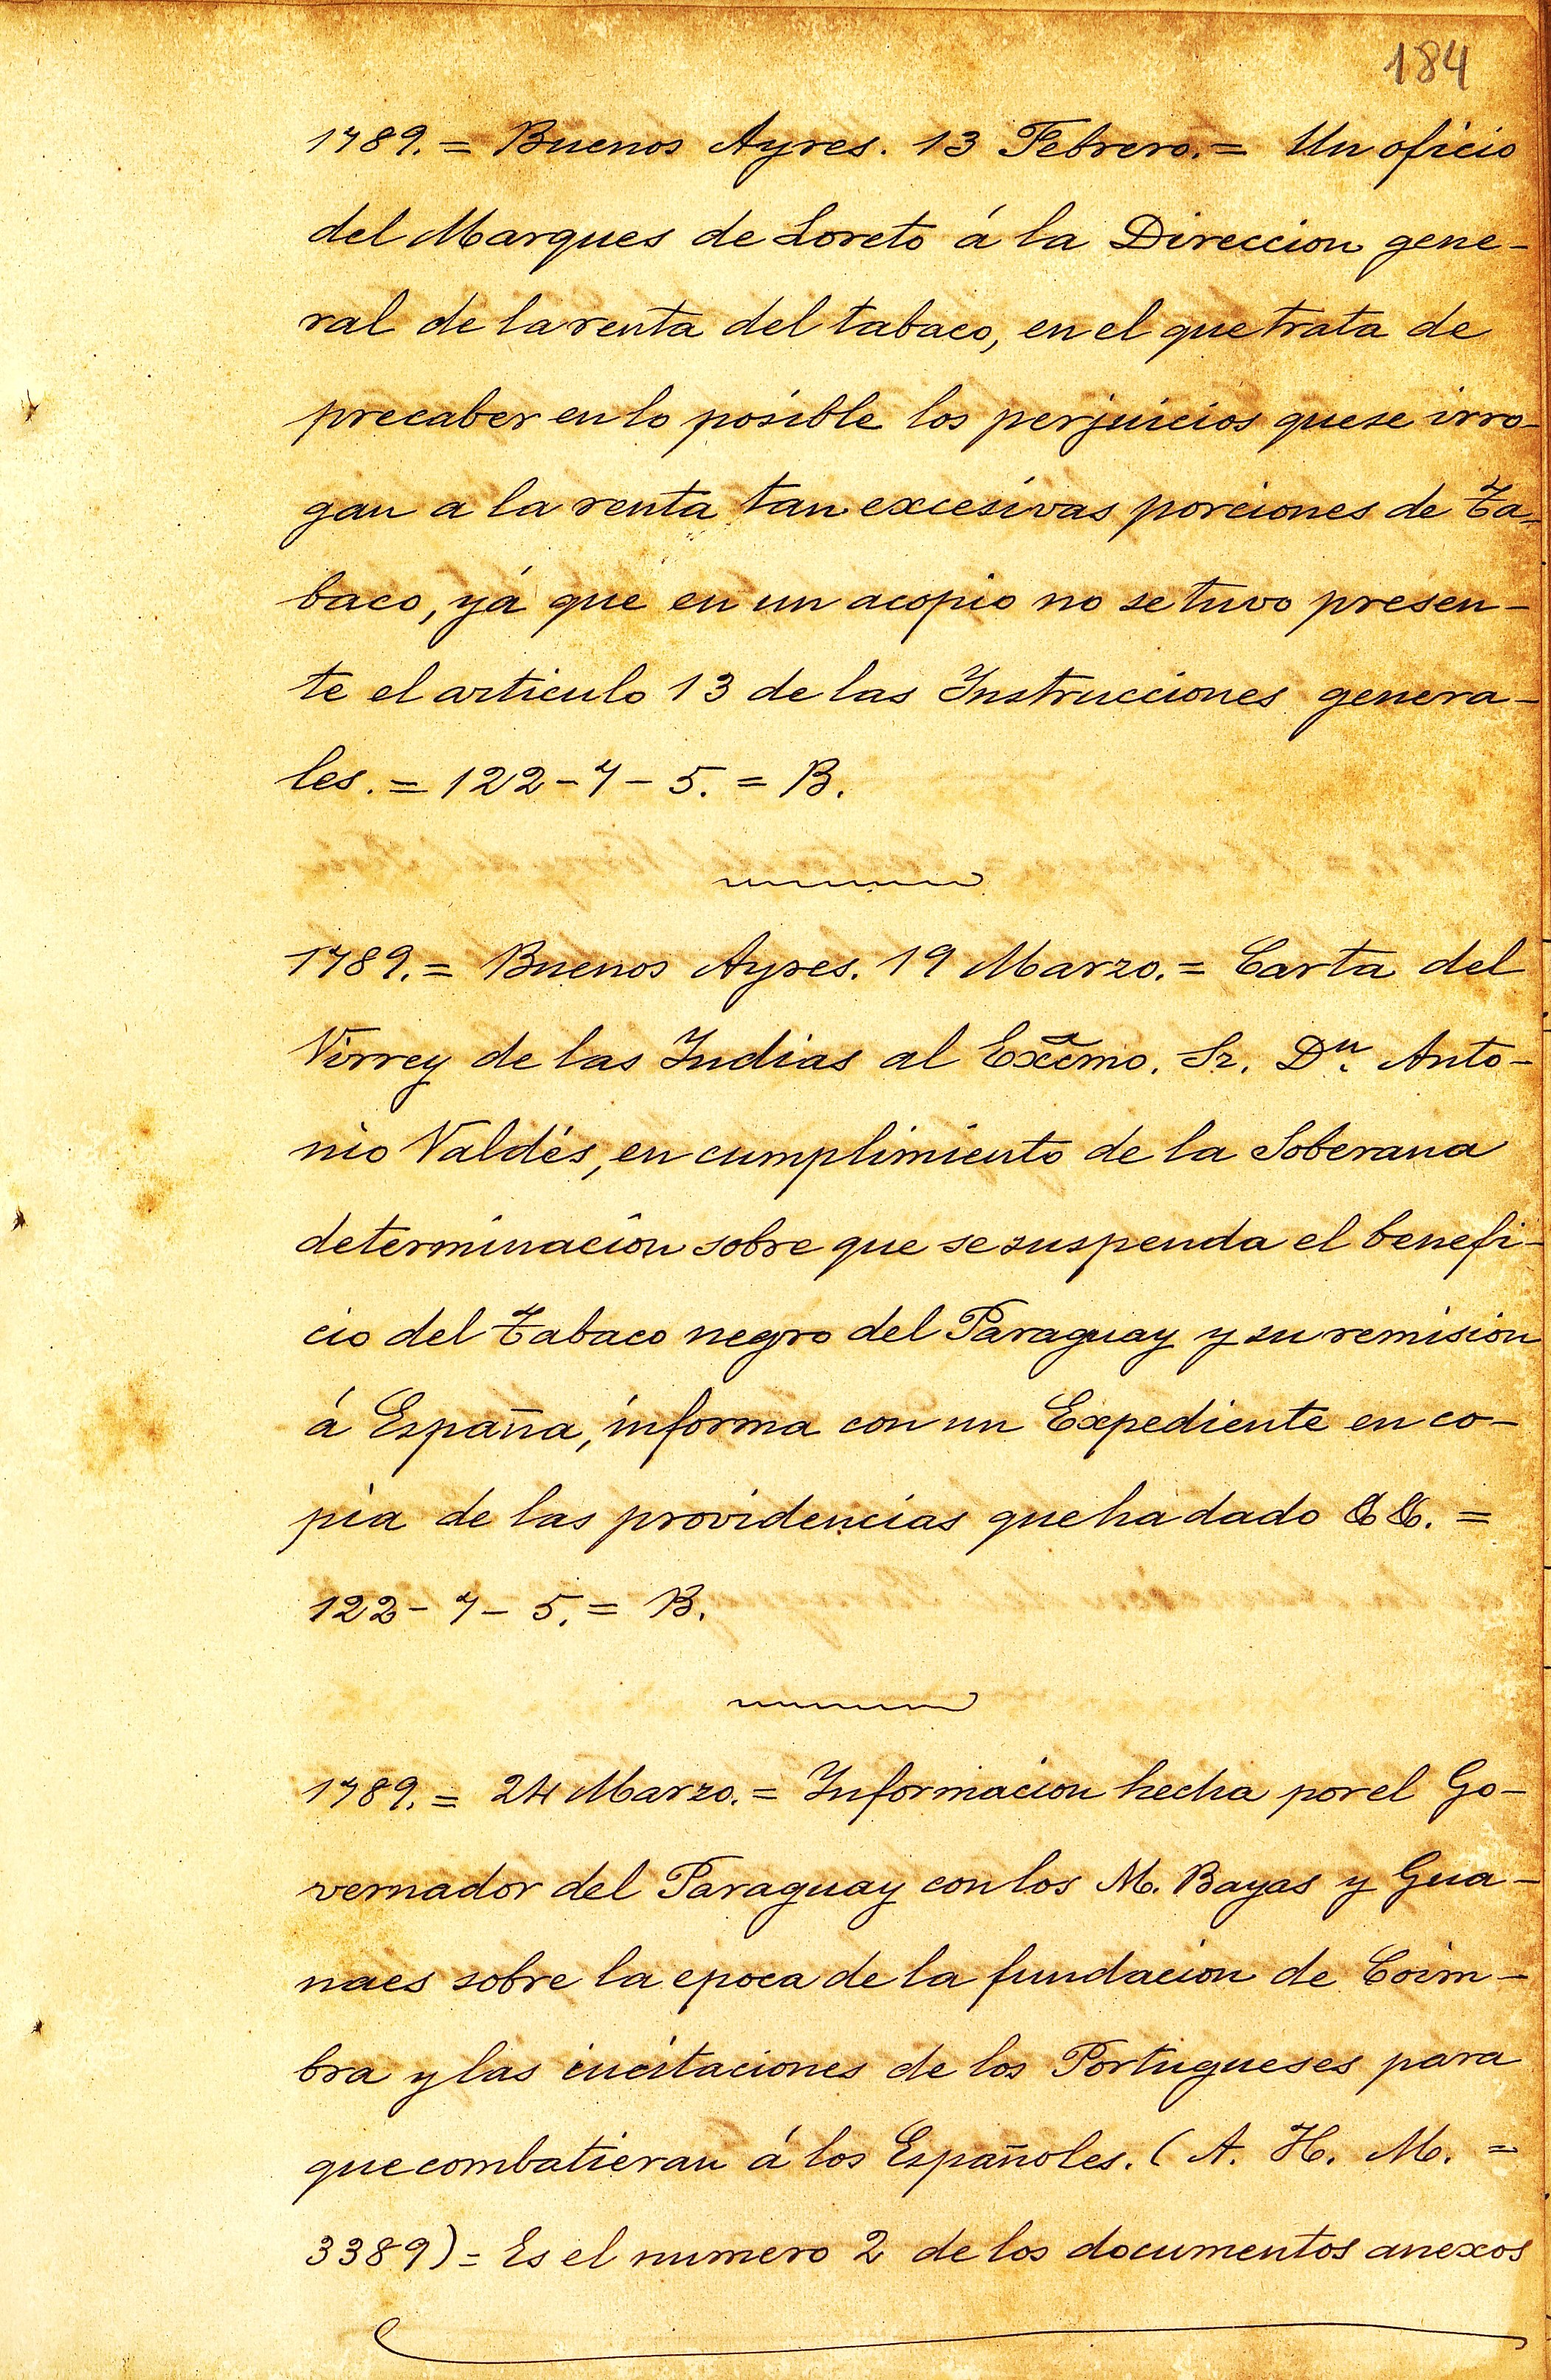 184
1789. = Buenos Ayres. 13 Febrero. = Un oficio
del Marques de Loreto á la Direccion gene-
ral de la renta del tabaco, en el que trata de
precaber en lo posible los perjuicios que se irro-
gan a la renta tan excesivas porciones de Ta-
baco, yá que en un acopio no se tuvo presen-
te el articulo 13 de las Instrucciones genera-
les. = 122-7-5. = B.
1789. = Buenos Ayres. 19 Marzo. = Carta del
Virrey de las Indias al Excmo. Sr. Dn. Anto-
nio Valdés, en cumplimiento de la Soberana
determinacion sobre que se suspenda el benefi-
cio del Tabaco negro del Paraguay y su remision
á España, informa con un Expediente en co-
pia de las providencias que ha dado &&. =
122-7-5. = B.
1789. = 24 Marzo. = Informacion hecha por el Go-
vernador del Paraguay con los M. Bayas y Gua-
naes sobre la epoca de la fundacion de Coim-
bra y las incitaciones de los Portugueses para
que combatieran á los Españoles. (A. H. M. =
3389) = Es el numero 2 de los documentos anexos